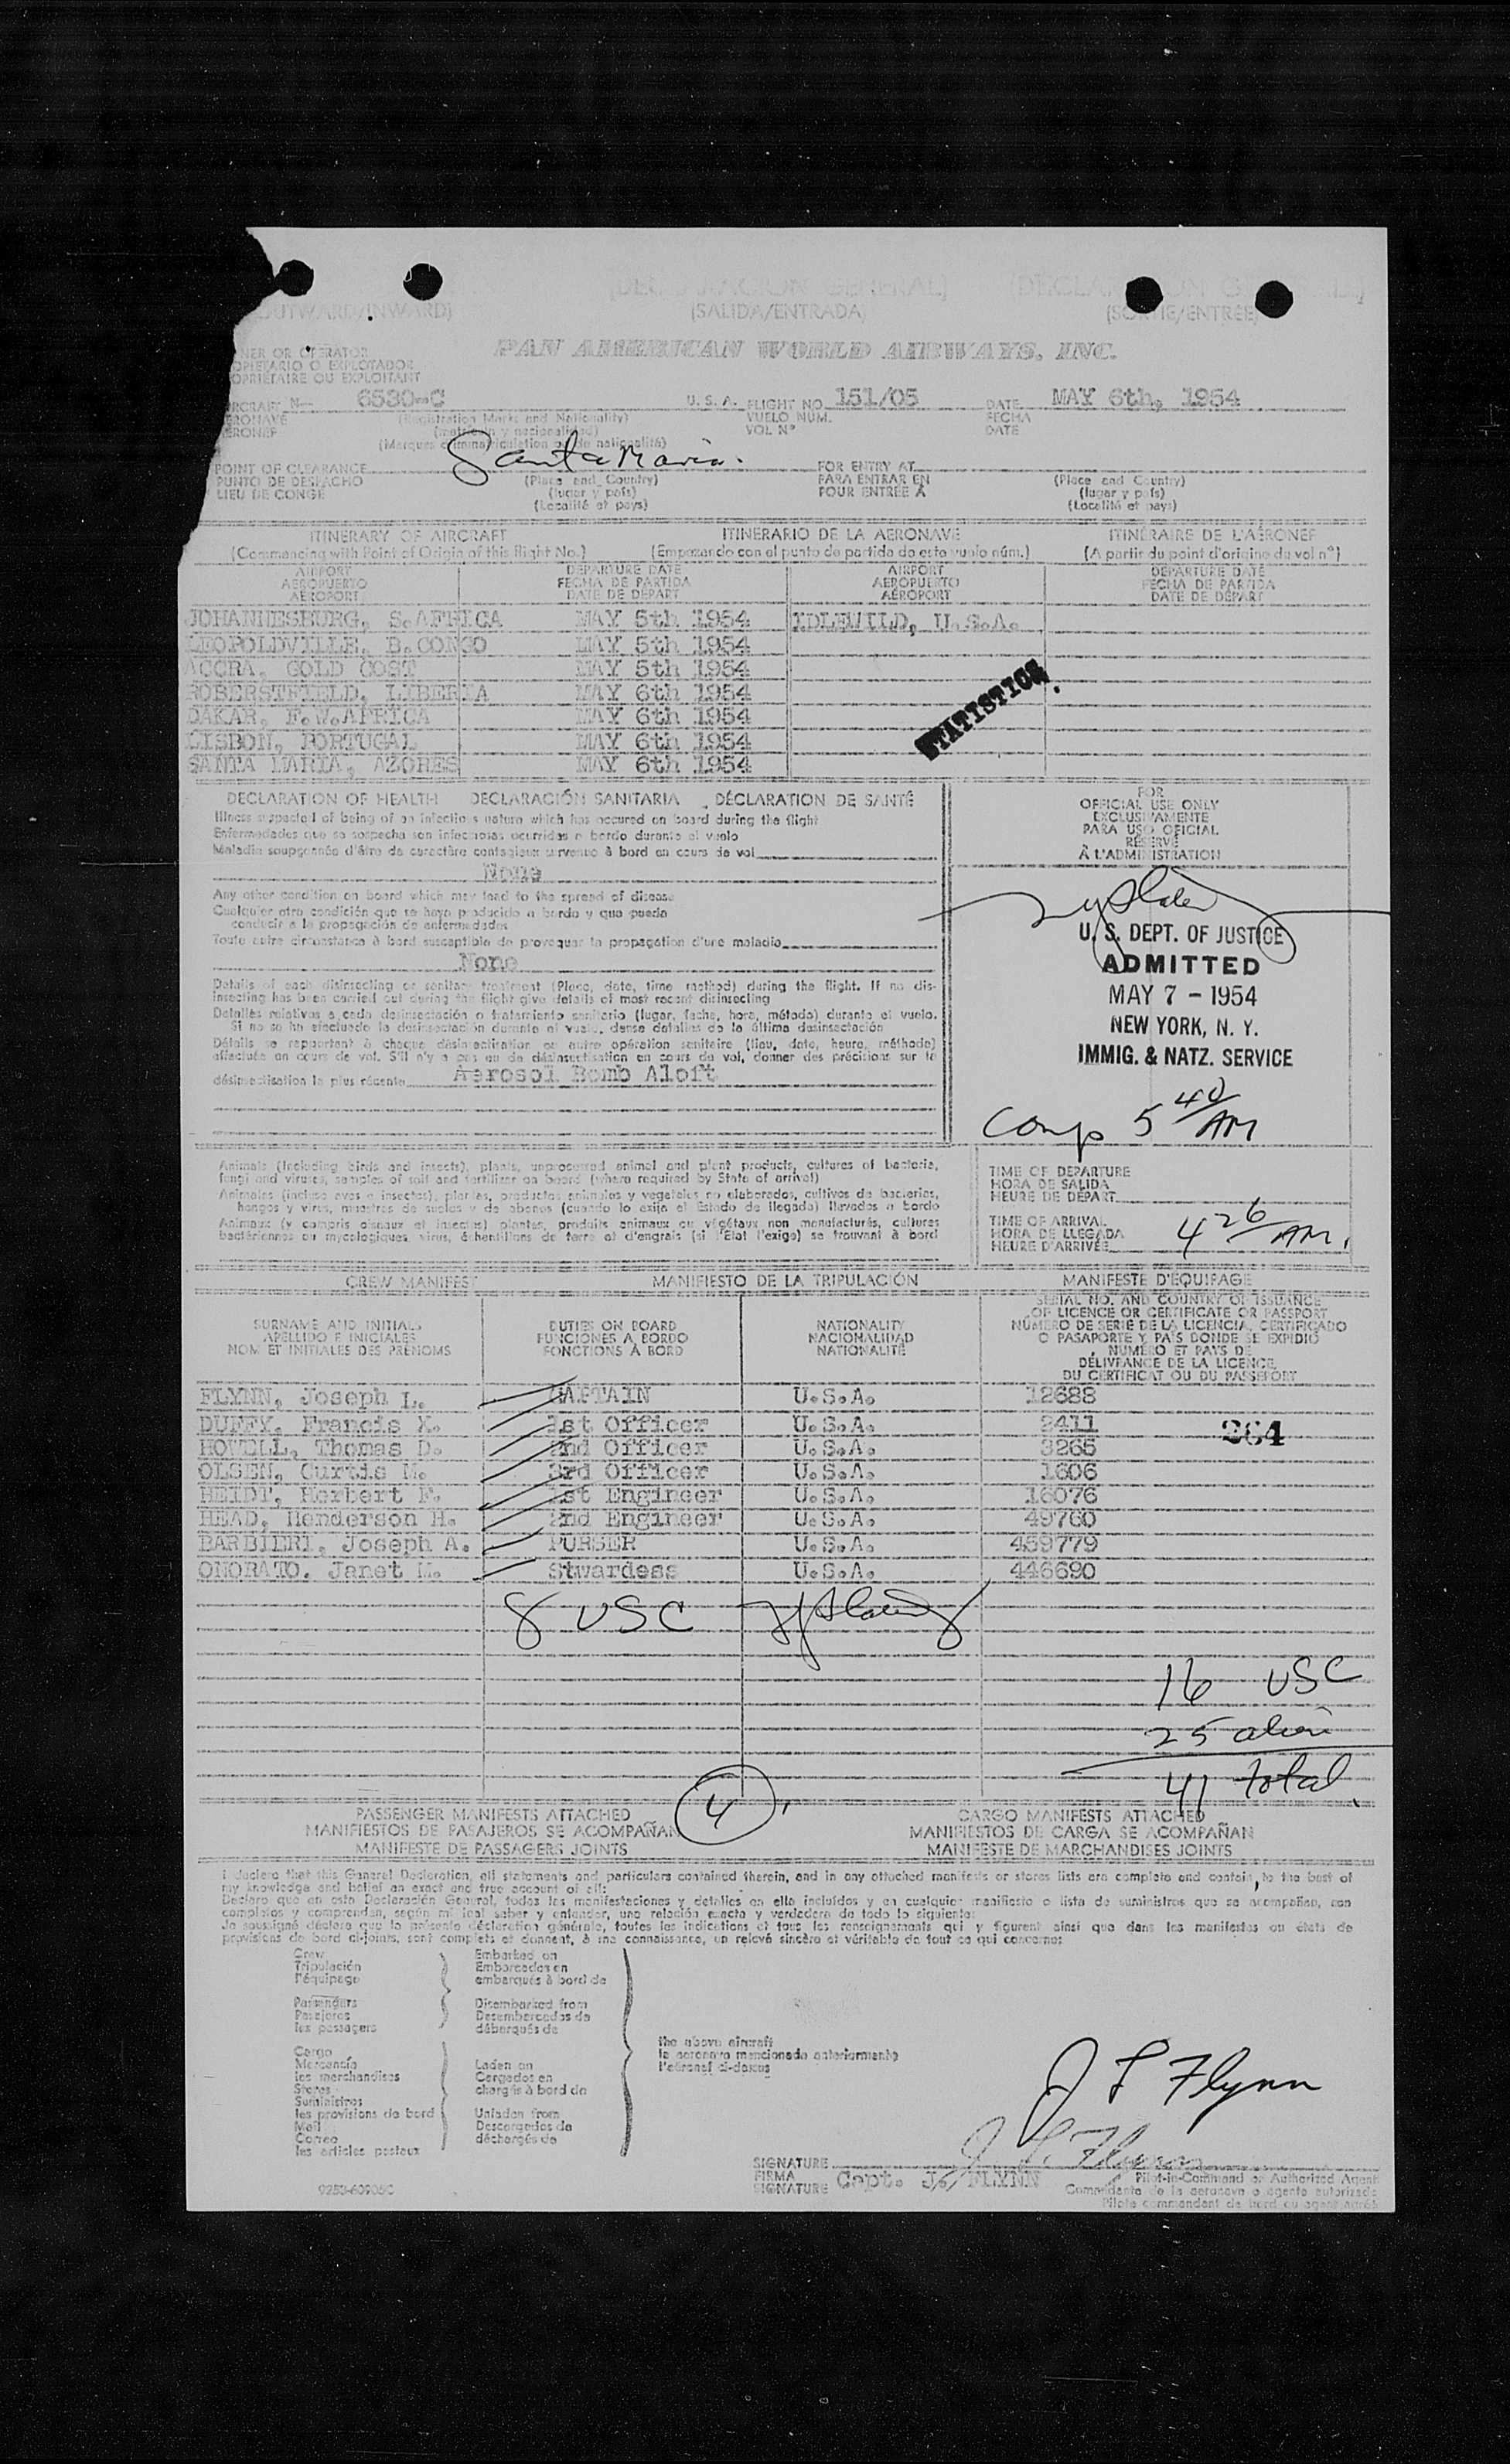 (DECLARACION GENERAL) (DECLARATION GENERALE)
(OUTWARD/INWARD) (SALIDA/ENTRADA) (SORTIE/ENTRÉE)
PAN AMERICAN WORLD AIRWAYS, INC.
NER OR OPERATOR
OPIETARIO O EXPLOTADOR
OPRIÉTAIRE OU EXPLOITANT
RCRAFT N— 6530-C U. S. A. FLIGHT NO. 151/05 DATE MAY 6th, 1954
RONAVE (Registration Marks and Nationality) VUELO NUM. FECHA
ERONEF (matrícula y nacionalidad) VOL Nº DATE
(Marques d'immatriculation et de nationalité)
Santa Maria.
POINT OF CLEARANCE (Place and Country) FOR ENTRY AT (Place and Country)
PUNTO DE DESPACHO (lugar y país) PARA ENTRAR EN (lugar y país)
LIEU DE CONGÉ (Localité et pays) POUR ENTRÉE À (Localité et pays)
ITINERARY OF AIRCRAFT ITINERARIO DE LA AERONAVE ITINÉRAIRE DE L'AÉRONEF
(Commencing with Point of Origin of this flight No.) (Empezando con el punto de partida de este vuelo núm.) (A partir du point d'origine du vol nº)
AIRPORT DEPARTURE DATE AIRPORT DEPARTURE DATE
AEROPUERTO FECHA DE PARTIDA AEROPUERTO FECHA DE PARTIDA
AÉROPORT DATE DE DÉPART AÉROPORT DATE DE DÉPART
JOHANNESBURG, S.AFRICA MAY 5th 1954 IDLEWILD, U.S.A.
LEOPOLDVILLE, B.CONGO MAY 5th 1954
ACCRA, GOLD COST MAY 5th 1954
ROBERSTFIELD, LIBERIA MAY 6th 1954
DAKAR, F.W.AFRICA MAY 6th 1954
LISBON, PORTUGAL MAY 6th 1954
SANTA MARIA, AZORES MAY 6th 1954
STATISTICS
DECLARATION OF HEALTH DECLARACIÓN SANITARIA DÉCLARATION DE SANTÉ
Illness suspected of being of an infectious nature which has occured on board during the flight
Enfermedades que se sospecha son infecciosas ocurridas a bordo durante el vuelo
Maladie soupçonnée d'être de caractère contagieux survenue à bord en cours de vol
None
Any other condition on board which may lead to the spread of disease
Cualquier otra condición que se haya producido a bordo y que pueda
conducir a la propagación de enfermedades
Toute autre circonstance à bord susceptible de provoquer la propagation d'une maladie
None
Details of each disinsecting or sanitary treatment (Place, date, time method) during the flight. If no dis-
insecting has been carried out during the flight give details of most recent disinsecting
Detalles relativos a cada desinsectación o tratamiento sanitario (lugar, fecha, hora, método) durante el vuelo.
Si no se ha efectuado la desinsectación durante el vuelo, dense detalles de la última desinsectación
Détails se rapportant à chaque désinsectisation ou autre opération sanitaire (lieu, date, heure, méthode)
effectuée en cours de vol. S'il n'y a pas eu de désinsectisation en cours de vol, donner des précisions sur la
désinsectisation la plus récente Aerosol Bomb Aloft
FOR
OFFICIAL USE ONLY
EXCLUSIVAMENTE
PARA USO OFICIAL
RÉSERVÉ
À L'ADMINISTRATION
U. S. DEPT. OF JUSTICE
ADMITTED
MAY 7 - 1954
NEW YORK, N. Y.
IMMIG. & NATZ. SERVICE
Comp 5 40/AM
Animals (including birds and insects), plants, unprocessed animal and plant products, cultures of bacteria,
fungi and viruses, samples of soil and fertilizer on board (where required by State of arrival)
Animales (incluso aves e insectos), plantas, productos animales y vegetales no elaborados, cultivos de bacterias,
hongos y virus, muestras de suelos y de abonos (cuando lo exija el Estado de llegada) llevados a bordo
Animaux (y compris oiseaux et insectes) plantes, produits animaux ou végétaux non manufacturés, cultures
bactériennes ou mycologiques, virus, échantillons de terre et d'engrais (si l'Etat l'exige) se trouvant à bord
TIME OF DEPARTURE
HORA DE SALIDA
HEURE DE DÉPART
TIME OF ARRIVAL
HORA DE LLEGADA
HEURE D'ARRIVÉE
4 26/AM.
CREW MANIFEST MANIFIESTO DE LA TRIPULACIÓN MANIFESTE D'ÉQUIPAGE
SURNAME AND INITIALS
APELLIDO E INICIALES
NOM ET INITIALES DES PRÉNOMS
DUTIES ON BOARD
FUNCIONES A BORDO
FONCTIONS À BORD
NATIONALITY
NACIONALIDAD
NATIONALITÉ
SERIAL NO. AND COUNTRY OF ISSUANCE
OF LICENCE OR CERTIFICATE OR PASSPORT
NÚMERO DE SERIE DE LA LICENCIA, CERTIFICADO
O PASAPORTE Y PAÍS DONDE SE EXPIDIÓ
NUMÉRO ET PAYS DE
DÉLIVRANCE DE LA LICENCE,
DU CERTIFICAT OU DU PASSEPORT
FLYNN, Joseph L. CAPTAIN U.S.A. 12688
DUFFY, Francis X. 1st Officer U.S.A. 2411
HOWELL, Thomas D. 2nd Officer U.S.A. 3265
OLSEN, Curtis M. 3rd Officer U.S.A. 1606
HEIDT, Herbert F. 1st Engineer U.S.A. 16076
HEAD, Henderson H. 2nd Engineer U.S.A. 49760
BARBIERI, Joseph A. PURSER U.S.A. 459779
ONORATO, Janet M. Stwardess U.S.A. 446690
264
8 USC
16 USC
25 alien
41 total
4
PASSENGER MANIFESTS ATTACHED CARGO MANIFESTS ATTACHED
MANIFIESTOS DE PASAJEROS SE ACOMPAÑAN MANIFIESTOS DE CARGA SE ACOMPAÑAN
MANIFESTE DE PASSAGERS JOINTS MANIFESTE DE MARCHANDISES JOINTS
I declare that this General Declaration, all statements and particulars contained therein, and in any attached manifests or stores lists are complete and contain, to the best of
my knowledge and belief an exact and true account of all:
Declaro que en esta Declaración General, todas las manifestaciones y detalles en ella incluídos y en cualquier manifiesto o lista de suministros que se acompañan, son
completos y comprenden, según mi leal saber y entender, una relación exacta y verdadera de todo lo siguiente:
Je soussigné déclare que la présente déclaration générale, toutes les indications et tous les renseignements qui y figurent ainsi que dans les manifestes ou états de
provisions de bord ci-joints, sont complets et donnent, à ma connaissance, un relevé sincère et véritable de tout ce qui concerne:
Crew
Tripulación
l'équipage
Passengers
Pasajeros
les passagers
Cargo
Mercancía
les merchandises
Stores
Suministros
les provisions de bord
Mail
Correo
les articles postaux
Embarked on
Embarcados en
embarqués à bord de
Disembarked from
Desembarcados de
débarqués de
Laden on
Cargados en
chargés à bord de
Unladen from
Descargados de
déchargés de
the above aircraft
la aeronave mencionada anteriormente
l'aéronef ci-dessus
J L Flynn
J. L. Flynn
SIGNATURE
FIRMA
SIGNATURE
Capt. J. FLYNN
Pilot-in-Command or Authorized Agent
Comandante de la aeronave o agente autorizado
Pilote commandant de bord ou agent agréé